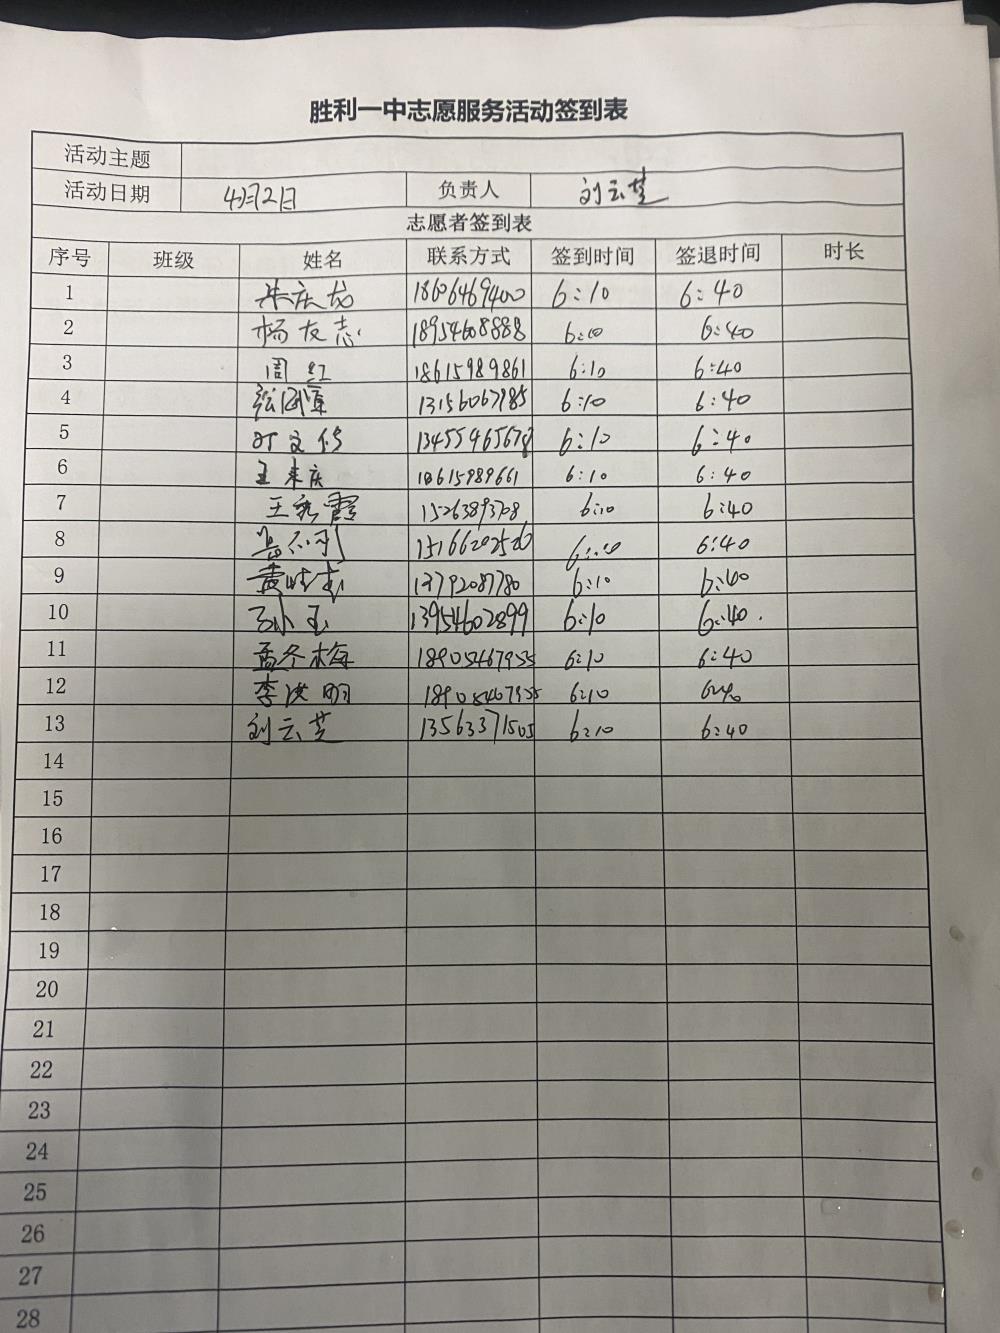 胜利一中志愿服务活动签到表
活动主题
活动日期 4月2日 负责人 刘云芝
志愿者签到表
序号 班级 姓名 联系方式 签到时间 签退时间 时长
1 朱庆龙 18606469400 6:10 6:40
2 杨友志 18954608888 6:10 6:40
3 周红 18615989861 6:10 6:40
4 13156067985 6:10 6:40
5 13455965678 6:10 6:40
6 王来庆 18615989661 6:10 6:40
7 王秀霞 15263893708 6:10 6:40
8 15166202520 6:10 6:40
9 13792087780 6:10 6:40
10 13954602899 6:10 6:40.
11 孟冬梅 18905467955 6:10 6:40
12 李洪明 18905467955 6:10 6:40
13 刘云芝 13563371505 6:10 6:40
14
15
16
17
18
19
20
21
22
23
24
25
26
27
28